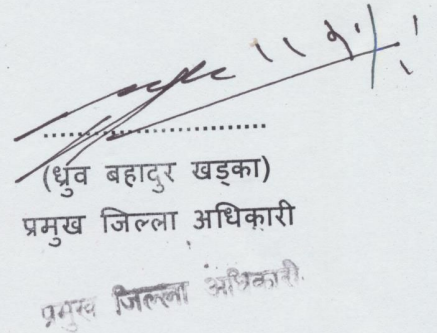 (ध्रुव बहादुर खड्का)
प्रमुख जिल्ला अधिकारी
प्रमुख जिल्ला अधिकारी